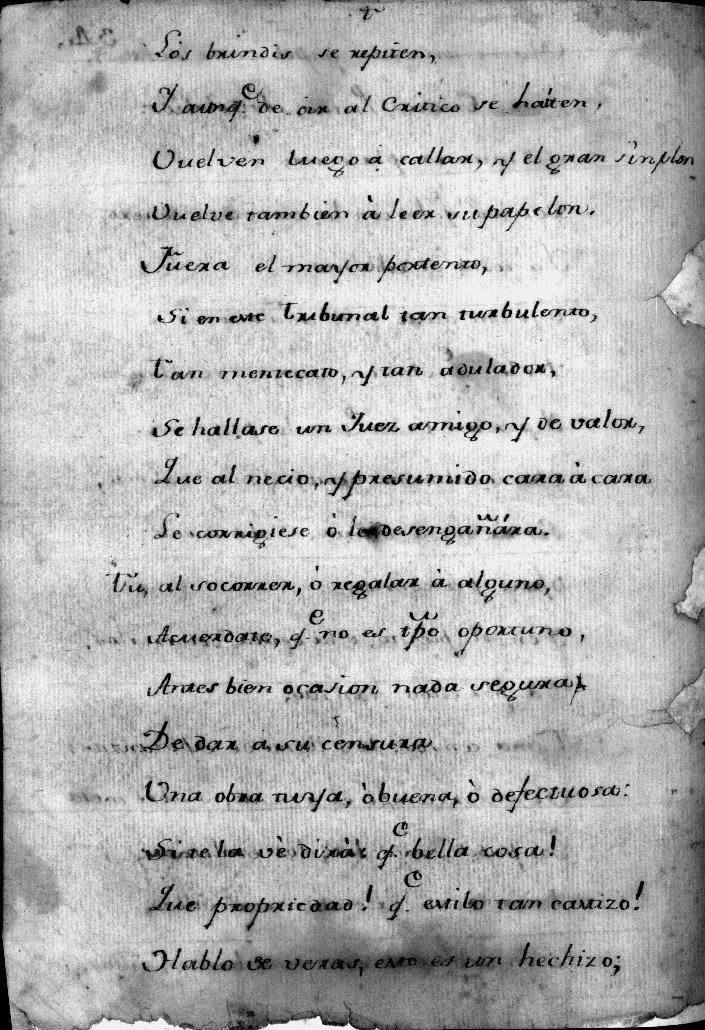 Los brindis se repiten,
I aunq.e de oir al Critico se hatten,
Vuelven luego à callar, y el gran sinplon
Vuelve tambien à leer su papelon.
Fuera el mayor portento,
Si en este Tribunal tan turbulento,
Tan mentecato, y tan adulador,
Se hallase un Juez amigo, y de valor,
Que al necio, y presumido cara à cara
Le corrigiese ò le desengañára.
Tu, al socorrer, ò regalar à alguno,
Acuerdate, q.e no es tpõ oportuno,
Antes bien ocasion nada segura
De dar à su censura
Una obra tuya, ò buena, ò defectuosa:
Si te la vè dirà: q.e bella cosa!
Que propriedad! q.e estilo tan castizo!
Hablo de veras, esto es un hechizo;